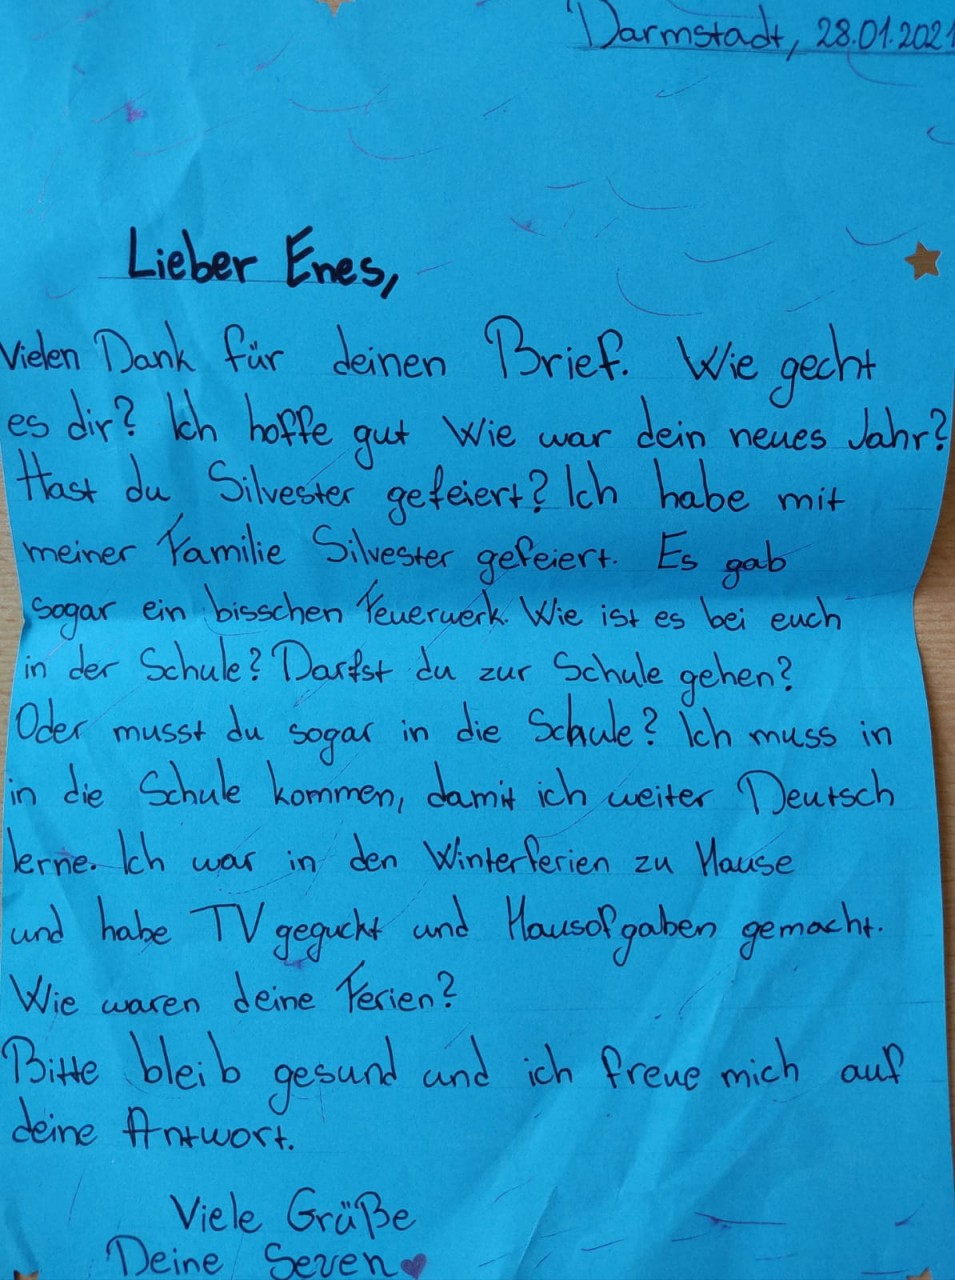 Darmstadt, 28.01.2021
Lieber Enes,
Vielen Dank für deinen Brief. Wie gecht
es dir? Ich hoffe gut Wie war dein neues Jahr?
Hast du Silvester gefeiert? Ich habe mit
meiner Familie Silvester gefeiert. Es gab
sogar ein bisschen Feuerwerk. Wie ist es bei euch
in der Schule? Darfst du zur Schule gehen?
Oder musst du sogar in die Schule? Ich muss in
in die Schule kommen, damit ich weiter Deutsch
lerne. Ich war in den Winterferien zu Hause
und habe TV geguckt und Hausofgaben gemacht.
Wie waren deine Ferien?
Bitte bleib gesund und ich freue mich auf
deine Antwort.
Viele Grüße
Deine Seven